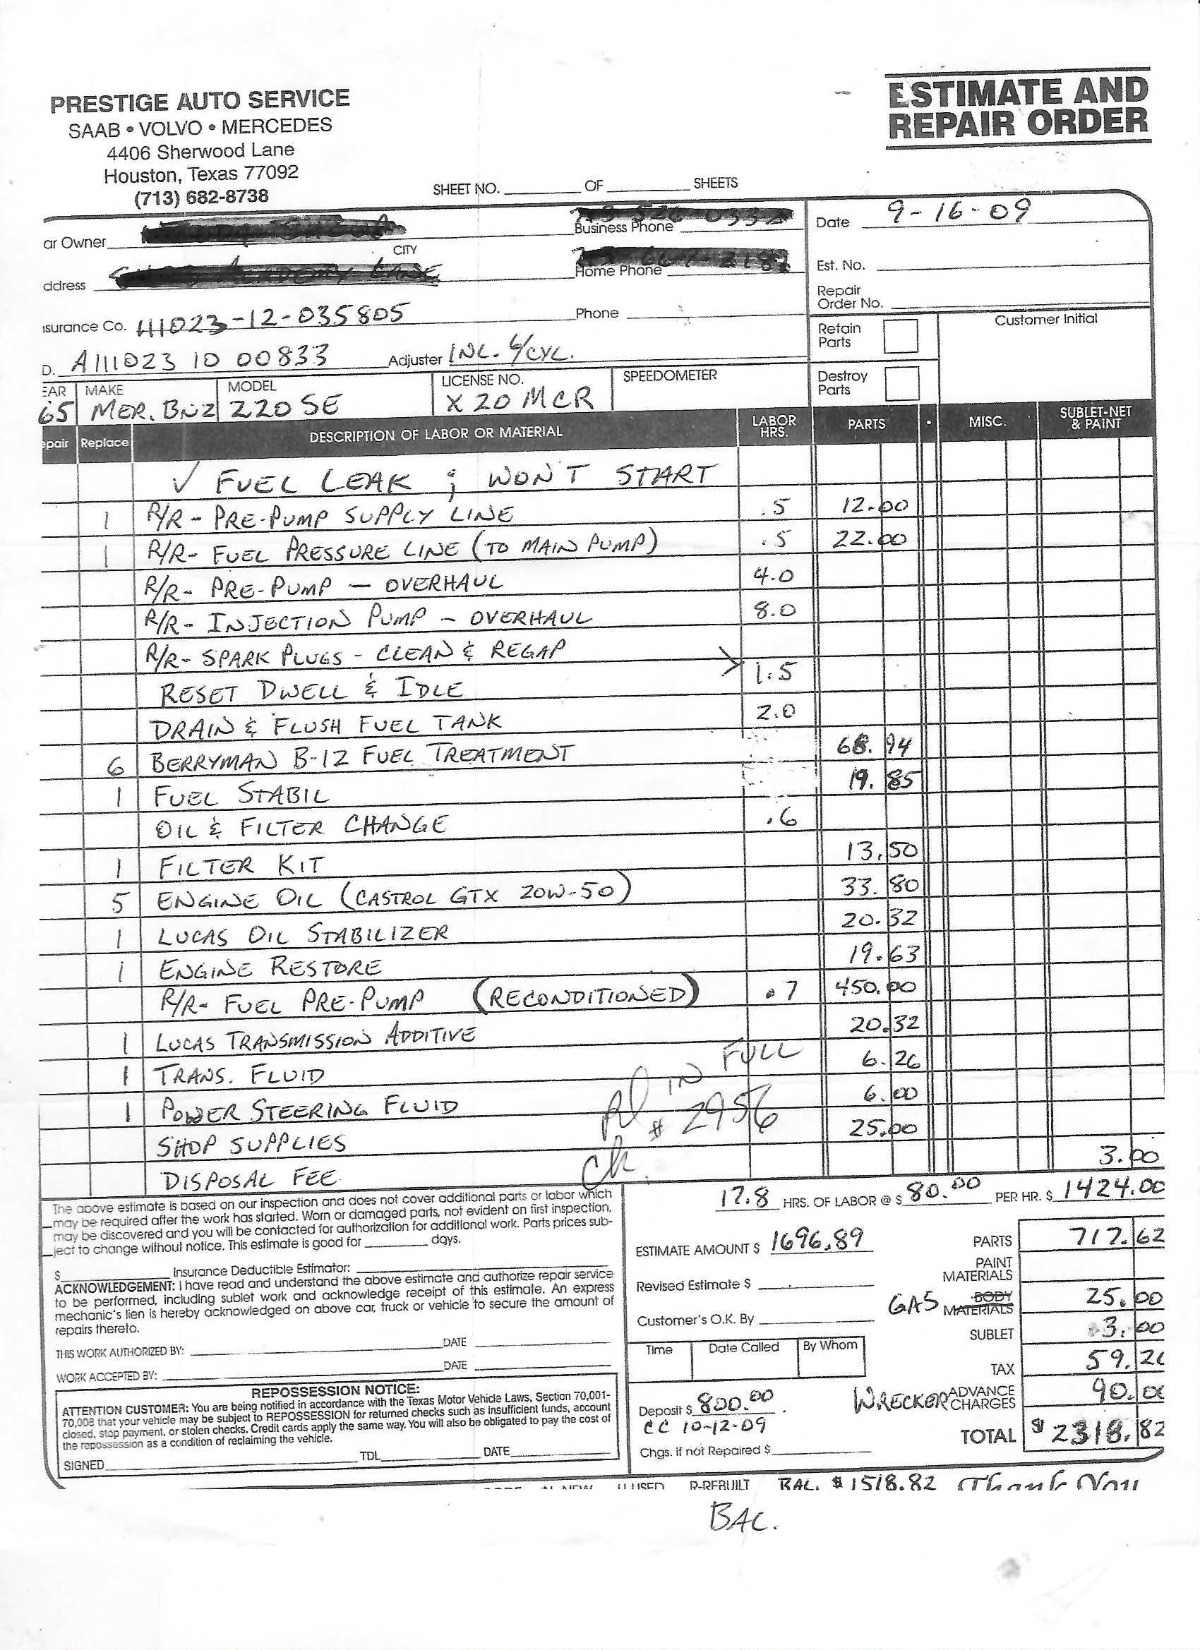 PRESTIGE AUTO SERVICE
SAAB • VOLVO • MERCEDES
4406 Sherwood Lane
Houston, Texas 77092
(713) 682-8738
ESTIMATE AND
REPAIR ORDER
SHEET NO. ________ OF ________ SHEETS
ar Owner
CITY
Business Phone
Date 9-16-09
ddress
Home Phone
Est. No.
Repair
Order No.
surance Co. 111023-12-035805
Phone
Retain
Parts
Customer Initial
D. A111023 10 00833
Adjuster INC. 6/CYL.
Destroy
Parts
EAR MAKE MODEL LICENSE NO. SPEEDOMETER
65 MER. BNZ 220 SE X20 MCR
epair Replace DESCRIPTION OF LABOR OR MATERIAL LABOR HRS. PARTS • MISC. SUBLET-NET & PAINT
✓ FUEL LEAK ; WON'T START
1 R/R - PRE-PUMP SUPPLY LINE .5 12.00
1 R/R - FUEL PRESSURE LINE (TO MAIN PUMP) .5 22.00
R/R - PRE-PUMP — OVERHAUL 4.0
R/R - INJECTION PUMP - OVERHAUL 8.0
R/R - SPARK PLUGS - CLEAN & REGAP
RESET DWELL & IDLE > 1.5
DRAIN & FLUSH FUEL TANK 2.0
6 BERRYMAN B-12 FUEL TREATMENT 68.94
1 FUEL STABIL 19.85
OIL & FILTER CHANGE .6
1 FILTER KIT 13.50
5 ENGINE OIL (CASTROL GTX 20W-50) 33.80
1 LUCAS OIL STABILIZER 20.32
1 ENGINE RESTORE 19.63
R/R - FUEL PRE-PUMP (RECONDITIONED) .7 450.00
1 LUCAS TRANSMISSION ADDITIVE 20.32
1 TRANS. FLUID 6.26
1 POWER STEERING FLUID 6.00
SHOP SUPPLIES 25.00
DISPOSAL FEE 3.00
Pd IN FULL
Ck. # 2956
The above estimate is based on our inspection and does not cover additional parts or labor which
may be required after the work has started. Worn or damaged parts, not evident on first inspection,
may be discovered and you will be contacted for authorization for additional work. Parts prices sub-
ject to change without notice. This estimate is good for ________ days.
$________ Insurance Deductible Estimator:
ACKNOWLEDGEMENT: I have read and understand the above estimate and authorize repair service
to be performed, including sublet work and acknowledge receipt of this estimate. An express
mechanic's lien is hereby acknowledged on above car, truck or vehicle to secure the amount of
repairs thereto.
THIS WORK AUTHORIZED BY: ________ DATE ________
WORK ACCEPTED BY: ________ DATE ________
REPOSSESSION NOTICE:
ATTENTION CUSTOMER: You are being notified in accordance with the Texas Motor Vehicle Laws, Section 70,001-
70,008 that your vehicle may be subject to REPOSSESSION for returned checks such as insufficient funds, account
closed, stop payment, or stolen checks. Credit cards apply the same way. You will also be obligated to pay the cost of
the repossession as a condition of reclaiming the vehicle.
SIGNED ________ TDL ________ DATE ________
17.8 HRS. OF LABOR @ $ 80.00 PER HR. $ 1424.00
ESTIMATE AMOUNT $ 1696.89
PARTS 717.62
Revised Estimate $
PAINT
MATERIALS
Customer's O.K. By
GAS BODY MATERIALS 25.00
SUBLET 3.00
Time Date Called By Whom
TAX 59.20
Deposit $ 800.00
CC 10-12-09
WRECKER ADVANCE CHARGES 90.00
Chgs. if not Repaired $
TOTAL $ 2318.82
N-NEW U-USED R-REBUILT BAL. $ 1518.82 Thank You
BAC.